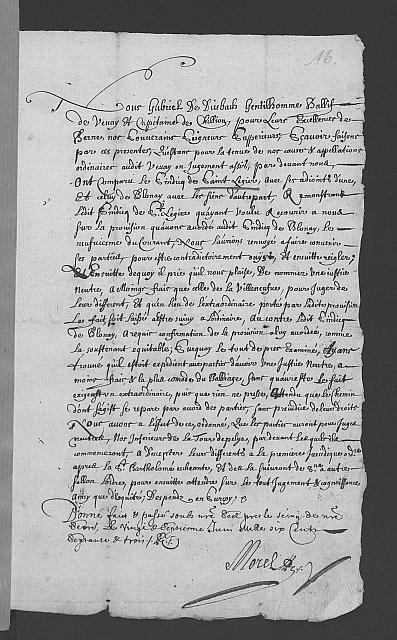 16.
Nous Gabriel De Diesbach Gentilhomme Ballif
de Vevay Et Capitaine de Chillion, pour Leurs Excellences de
Berne, nos Souverains Seigneurs Superieurs, Scavoir faisons
par ces presentes, Qu'estans pour la tenue de nos cours & appellations
ordinaires audit Vevay en Jugement assis, par devant nous
Ont comparu Le Sindiq de Saint Legier, avec ses adioints d'une,
Et celuy de Blonay avec les siens d'autre part, Remonstrant
Ledit Sindiq de St. Legier qu'ayant voulu Recourir a nous
sur la provision qu'avons audit Sindiq de Blonay, le
neufiesme du courant, Nous L'aurions renvoyé a faire convenir
ses parties, pour estre contradictoirement ouys, Et ensuitte reigler,
Ensuitte dequoy il prie qu'il nous plaise, De nommer une iustice
Neutre, a Moings frais que celle de la Villeneufve, pour Juger de
Leur different, Et qu'en lieu de l'extraordinaire porté par ladite provision
Le fait soit suivy a l'ordinaire, Au contre Ledit Sindiq
de Blonay, a requis confirmation de la provision luy accordée, comme
la soustenant equitable, Surquoy le tout de pres Examiné, Ayans
trouvé qu'il estoit expedient aux parties d'avoir une Justice Neutre, a
moins frais & la plus du Balliage, sans qu'au reste le fait
exigeast un extraordinaire, pour que rien ne presse, Attendu que les chemin
dont s'agist se repare par avoir des parties, sans preiudice de leurs droits
Nous avons a l'effect de ce, ordonné, Que les parties auront pour Juges
neutres, Nos Inferieurs de La Tour de peylz, pardevant lesquels ils
commenceront, a porter leurs differents a la premiere Juridique
apres la St. Barthelomé
pour ensuitte attendre sur le tout Jugement & cognoissance
ainsy que d'equité, Despends en surçoy,
Donné, fait et passé soubs nre Seel pres le seing de nre
Secret, Le vingt & septiesme Juin Mille six Cents
Septante & trois
Morel